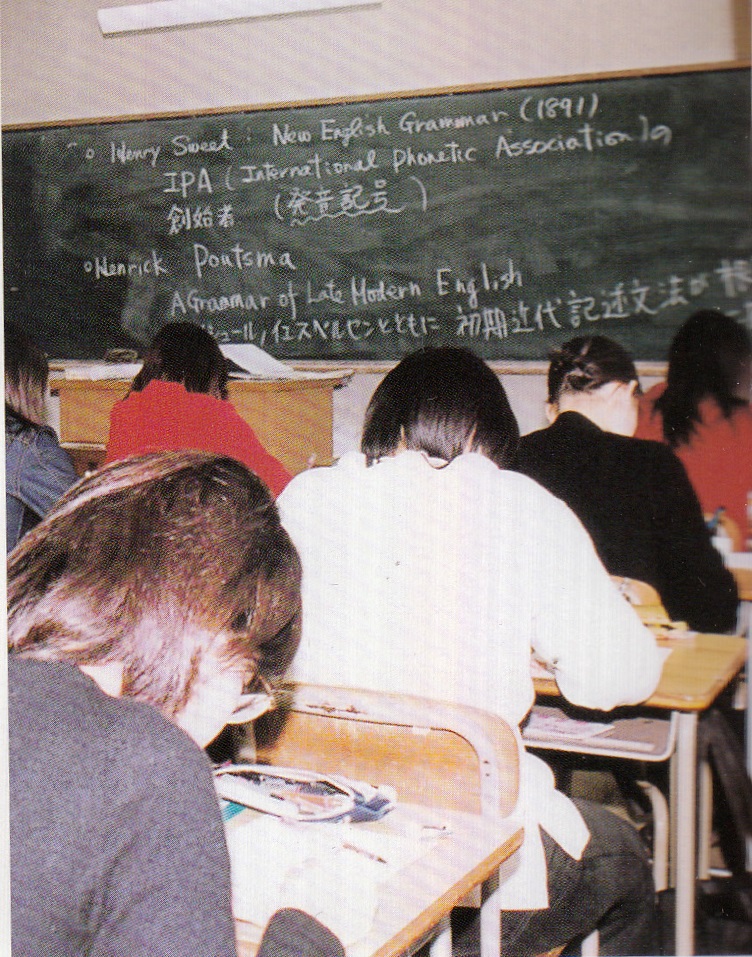 ○ Henry Sweet : New English Grammar (1891)
IPA (International Phonetic Association)の
創始者 (発音記号)
○Henrick Poutsma
A Grammar of Late Modern English
ュール, イェスペルセンとともに 初期近代記述文法が